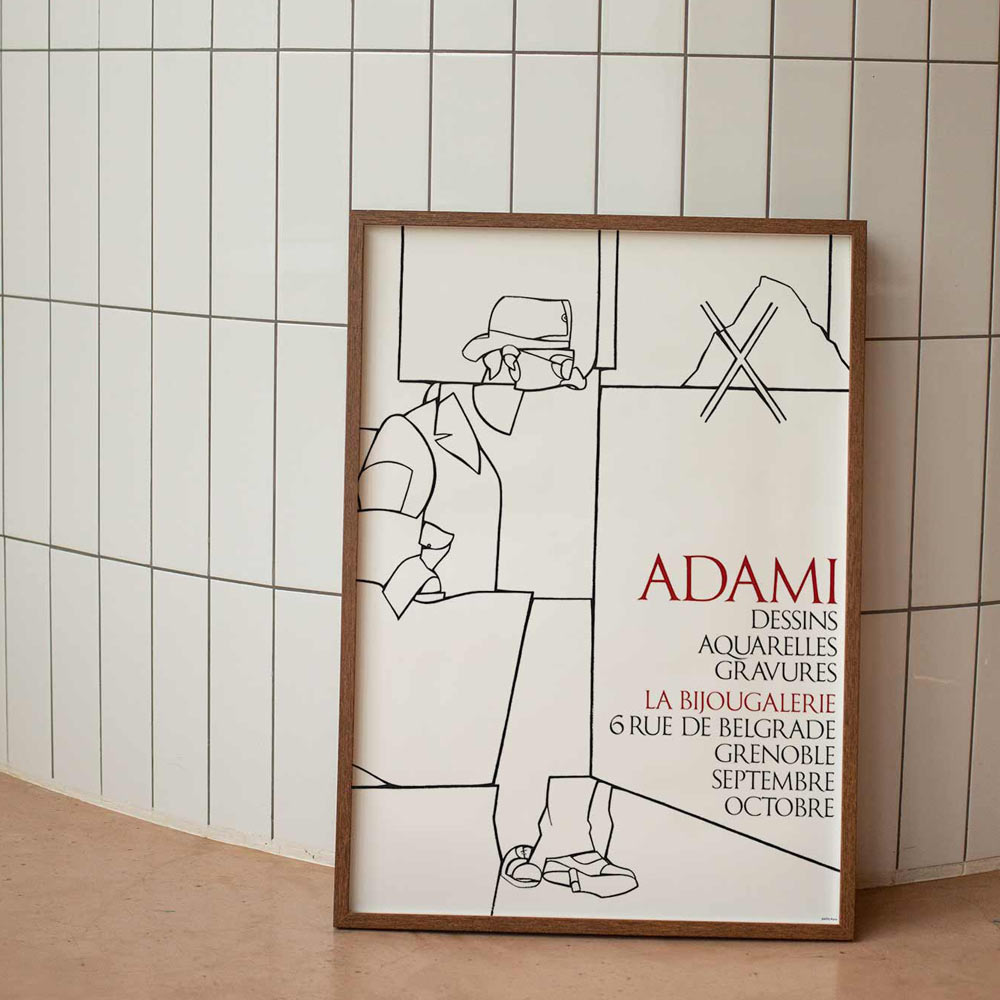 ADAMI
DESSINS
AQUARELLES
GRAVURES
LA BIJOUGALERIE
6 RUE DE BELGRADE
GRENOBLE
SEPTEMBRE
OCTOBRE